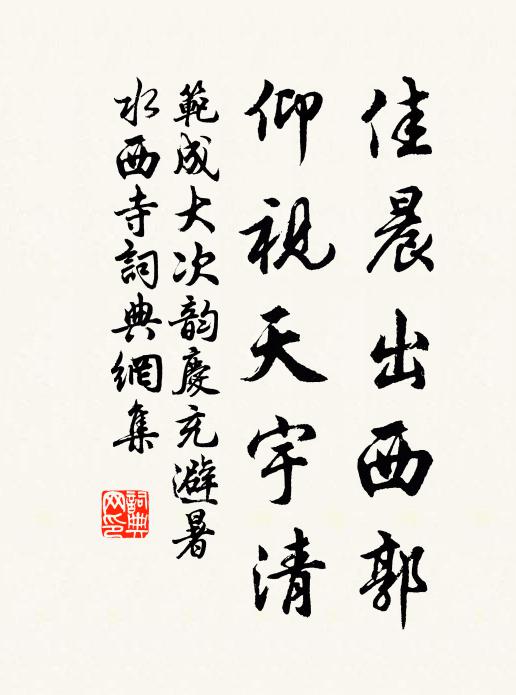 佳晨出西郭
仰視天宇清
範成大次韵慶充避暑
水西寺詞典網集
詞典网印